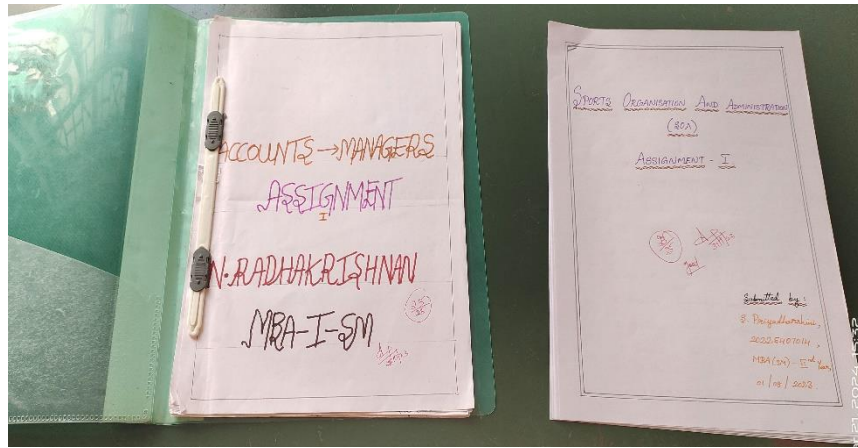 ACCOUNTS → MANAGERS
ASSIGNMENT
I
N. RADHAKRISHNAN
MBA-I-SM
SPORTS ORGANISATION AND ADMINISTRATION
(SOA)
ASSIGNMENT - I
Submitted by:
MBA (SM) - IInd Year,
01/08/2023.